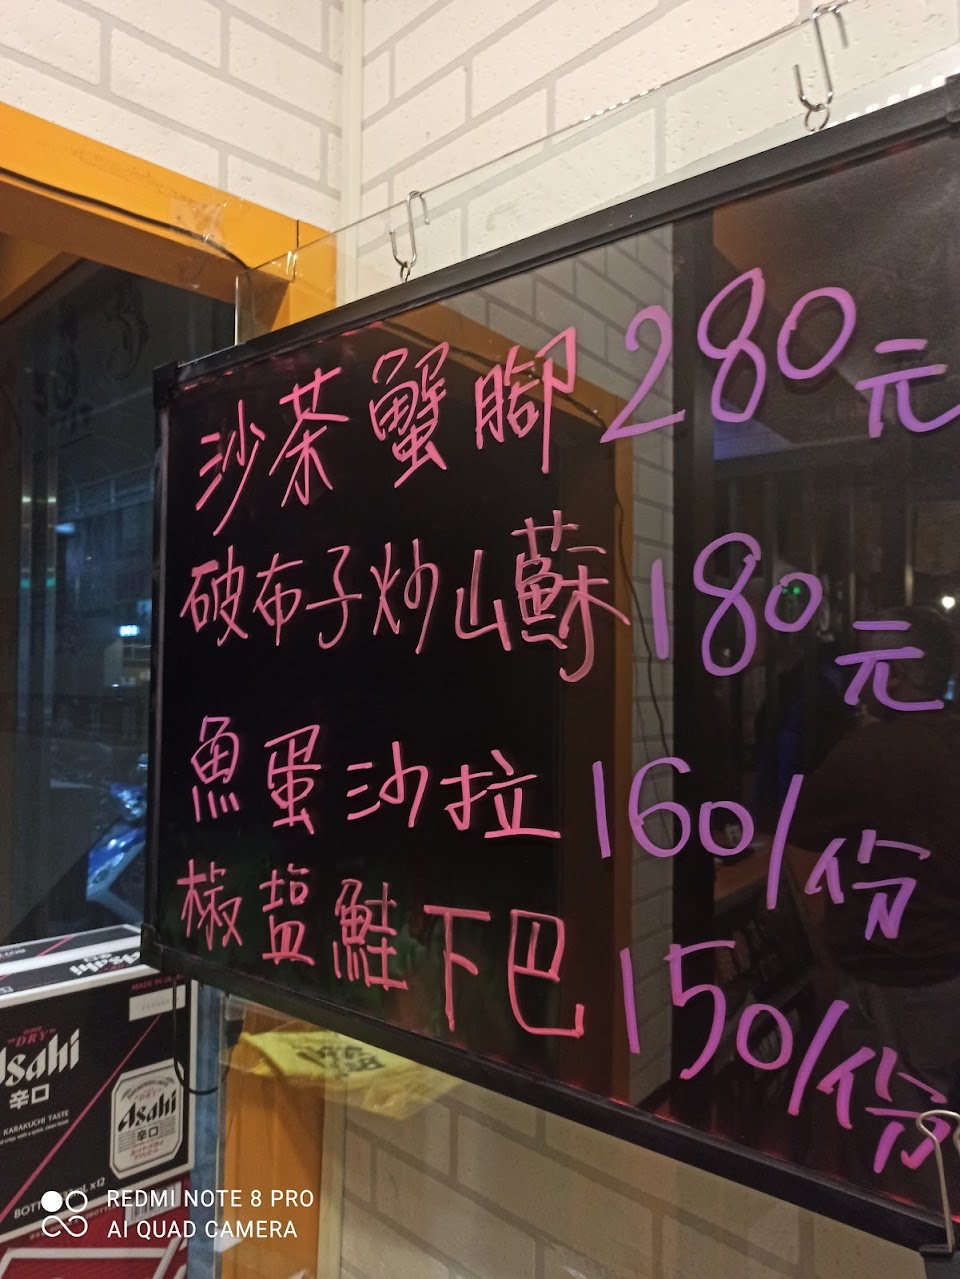 沙茶蟹腳 280元
破布子炒山蘇 180元
魚蛋沙拉 160/份
椒鹽鮭下巴 150/份
Asahi
MADE IN
"DRY"
Asahi
辛口
KARAKUCHI TASTE
Asahi
辛口
x12
REDMI NOTE 8 PRO
AI QUAD CAMERA